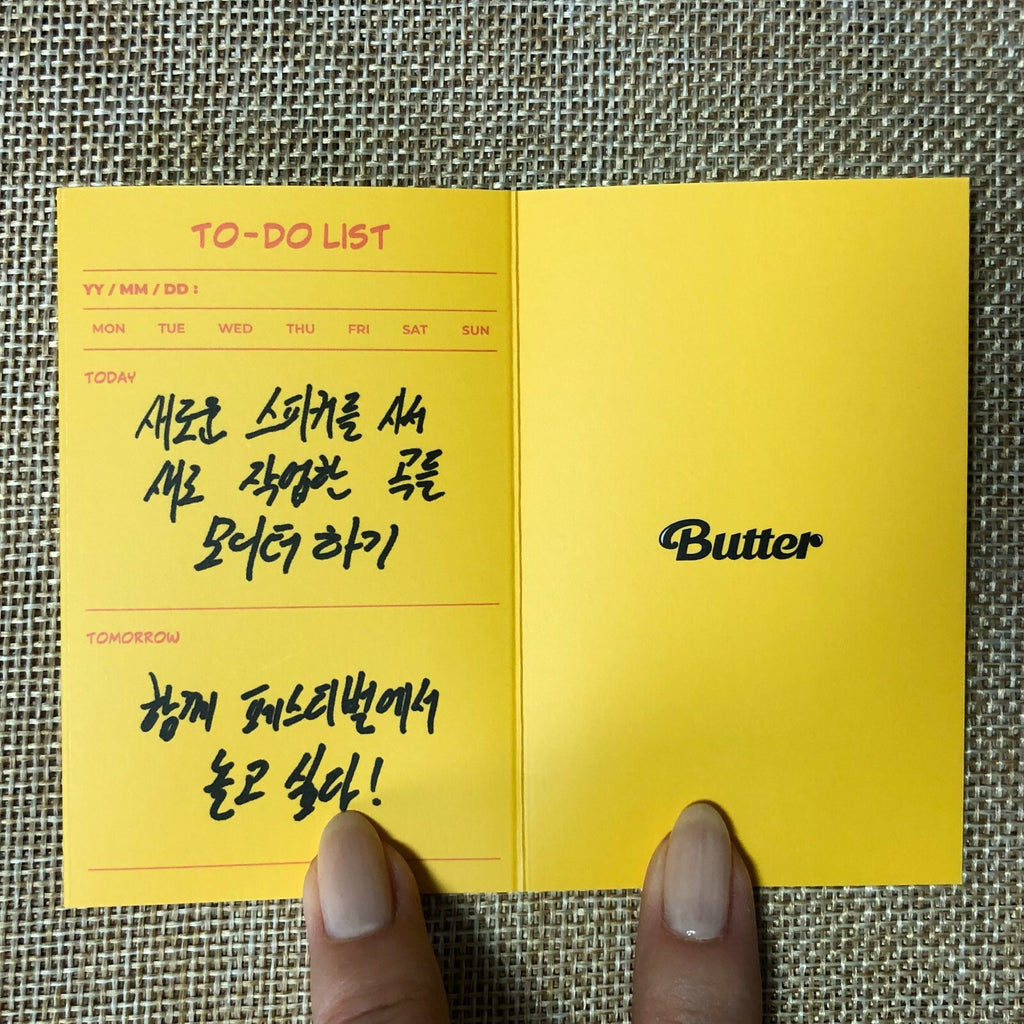 TO-DO LIST
YY / MM / DD :
MON TUE WED THU FRI SAT SUN
TODAY
새로운 스피커를 사서
새로 작업한 곡들
모니터 하기
TOMORROW
함께 페스티벌에서
놀고 싶다!
Butter